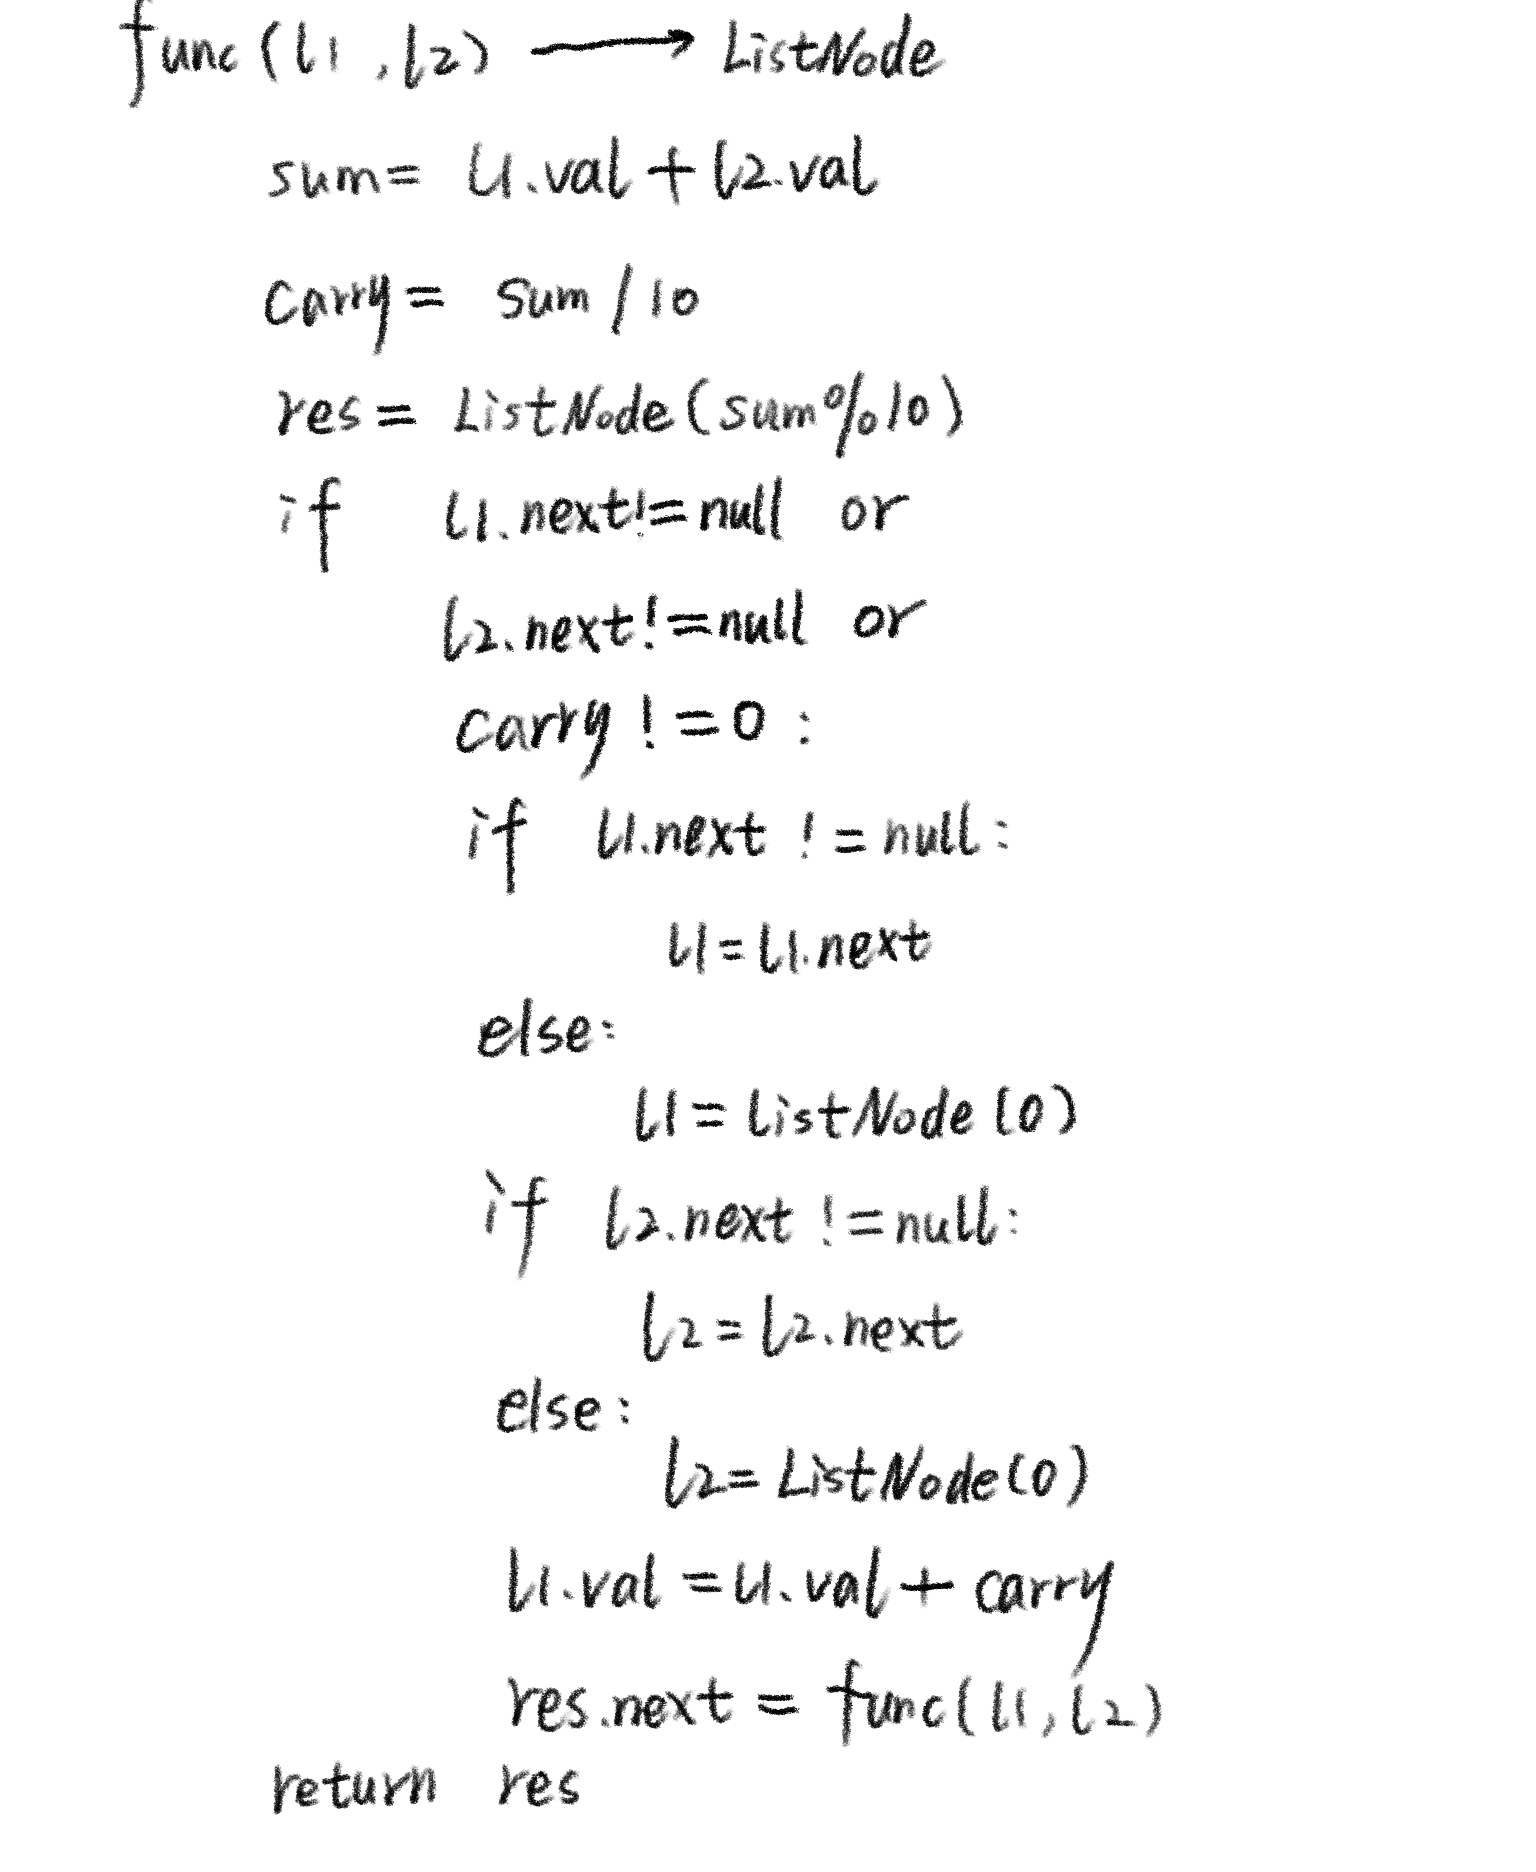 func(l1,l2) → ListNode
sum= l1.val + l2.val
carry= sum/10
res= ListNode(sum%10)
if l1.next!=null or
l2.next!=null or
carry!=0:
if l1.next != null:
l1=l1.next
else:
l1=listNode(0)
if l2.next !=null:
l2=l2.next
else:
l2=ListNode(0)
l1.val=l1.val+carry
res.next=func(l1,l2)
return res